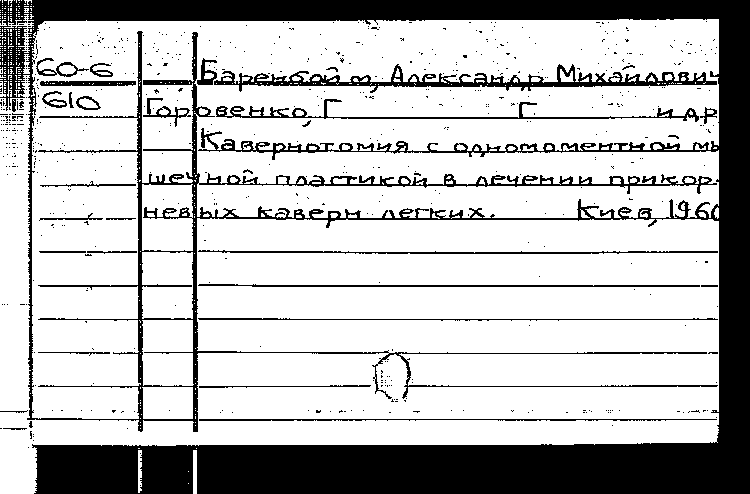 60-6 Баренбойм, Александр Михайлович
610 Горовенко, Г Г и др
Кавернотомия с одномоментной мы
шечной пластикой в лечении прикор-
невых каверн легких. Киев, 1960